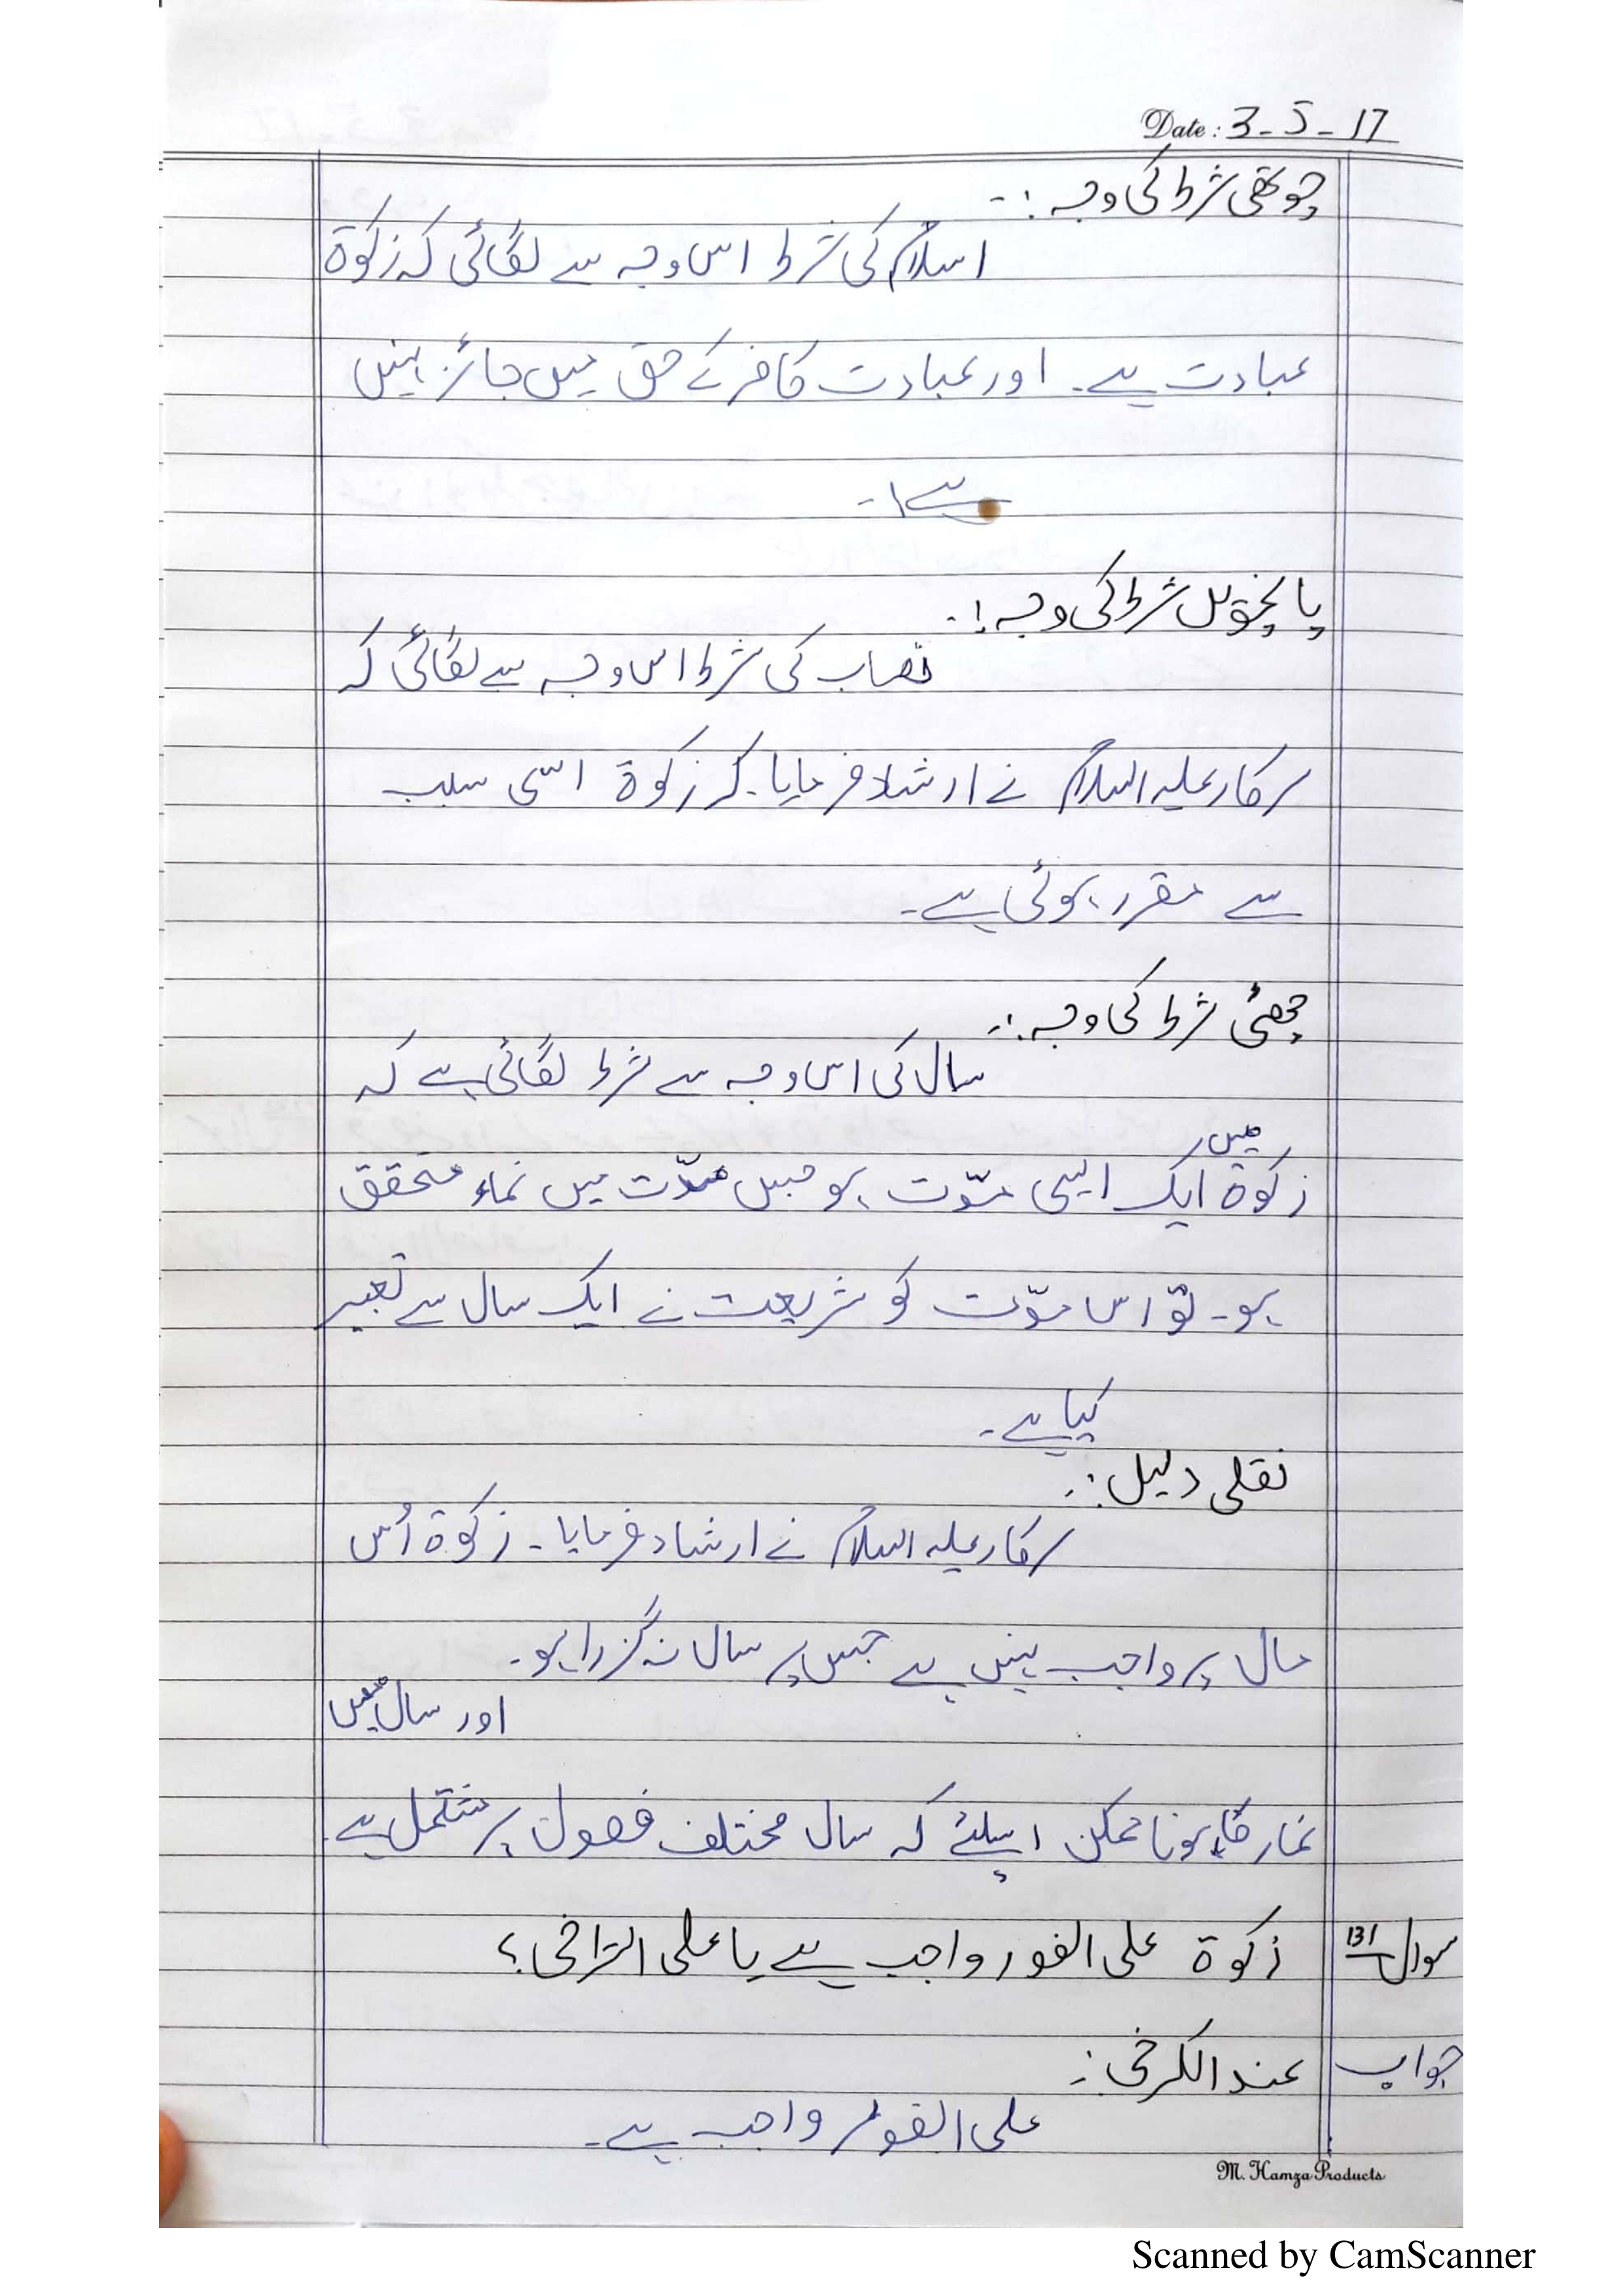 Date: 3-5-17
چوتھی شرط کی وجہ :-
اسلام کی شرط اس وجہ سے لگائی کہ زکوۃ
عبادت ہے۔ اور عبادت کافر کے حق میں جائز نہیں
ہے۔
پانچویں شرط کی وجہ :-
نصاب کی شرط اس وجہ سے لگائی کہ
سرکار علیہ السلام نے ارشاد فرمایا۔ کہ زکوۃ اسی سبب
سے مقرر ہوئی ہے۔
چھٹی شرط کی وجہ :-
سال کی اس وجہ سے شرط لگائی ہے کہ
میں
زکوۃ ایک ایسی مدّت ہو جس مدّت میں نماء متحقق
ہو۔ تو اس مدّت کو شریعت نے ایک سال سے تعبیر
کیا ہے۔
نقلی دلیل :-
سرکار علیہ السلام نے ارشاد فرمایا۔ زکوۃ اُس
مال پر واجب نہیں ہے جس پر سال نہ گزرا ہو۔
اور سال میں
نماء کا ہونا ممکن اسلئے کہ سال مختلف فصول پر مشتمل ہے۔
سوال 131 زکوۃ علی الفور واجب ہے یا علی التراخی؟
جواب عند الکرخی :-
علی الفور واجب ہے۔
M. Hamza Products
Scanned by CamScanner